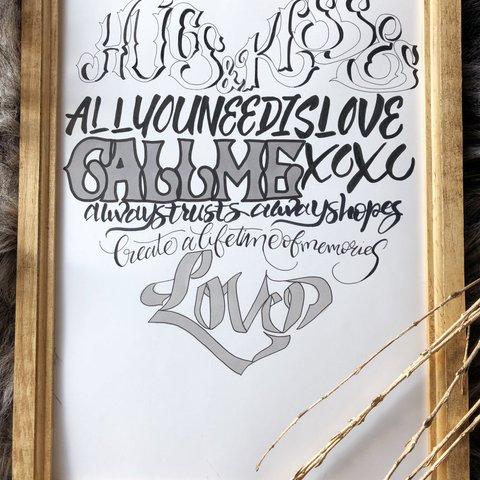 HUGS & KISSES
ALLYOUNEEDISLOVE
CALLME XOXO
alwaystrusts alwayshopes
Create a lifetime of memories
Love